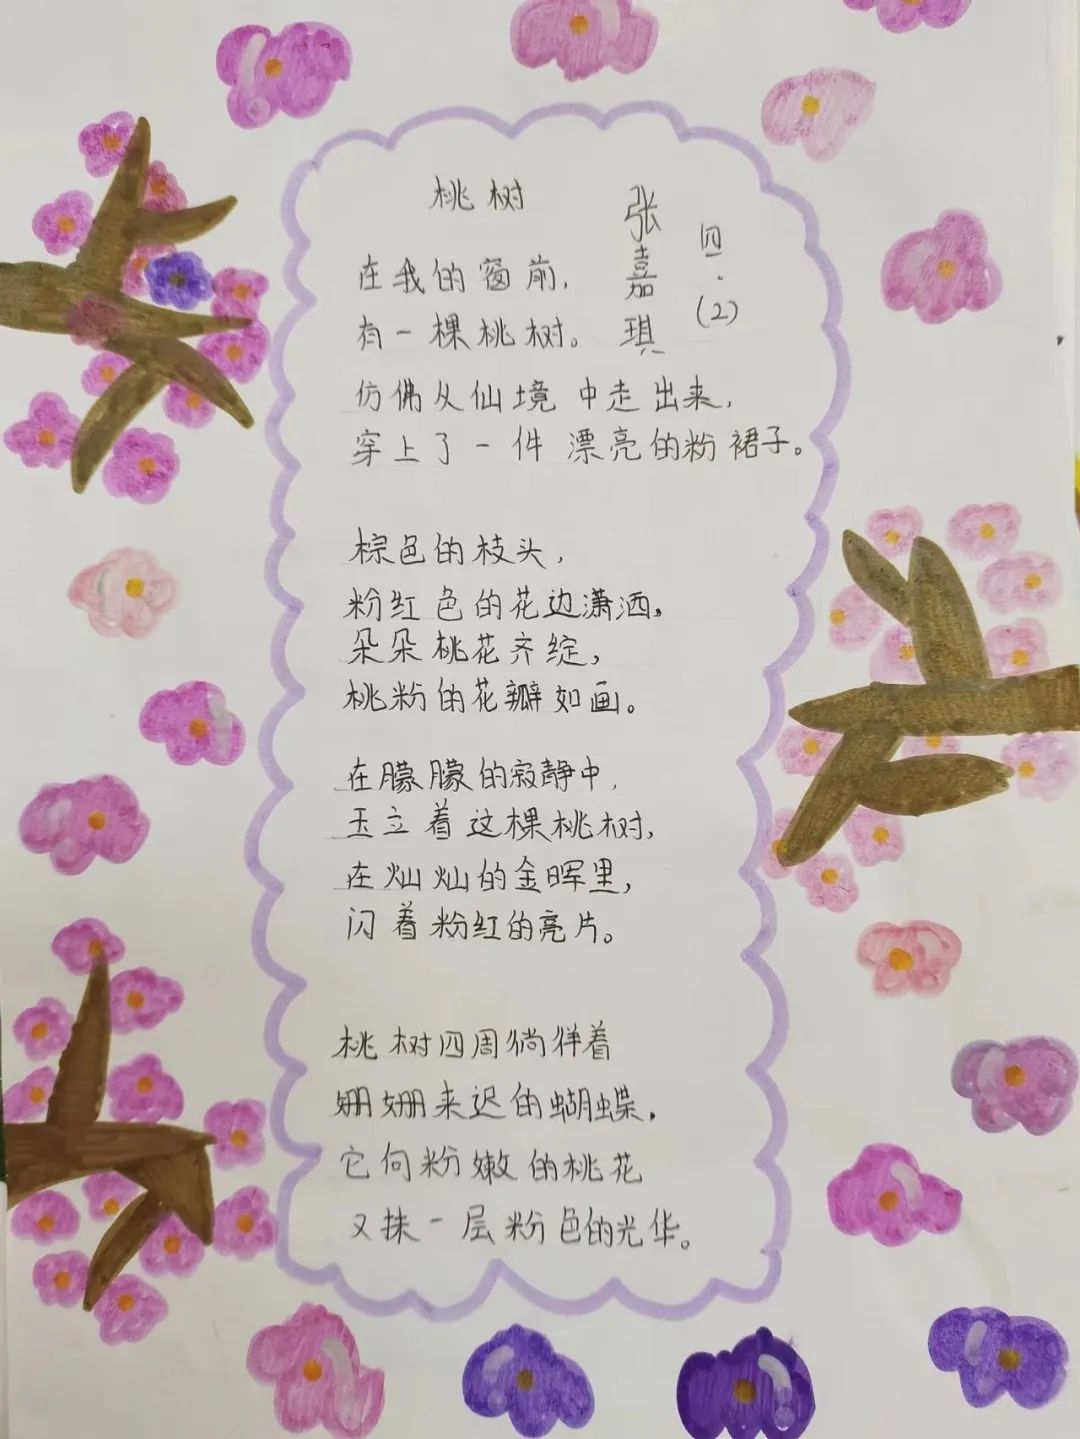 桃树
张嘉琪
四.(2)
在我的窗前,
有一棵桃树。
仿佛从仙境中走出来,
穿上了一件漂亮的粉裙子。
棕色的枝头,
粉红色的花边潇洒,
朵朵桃花齐绽,
桃粉的花瓣如画。
在朦朦的寂静中,
玉立着这棵桃树,
在灿灿的金晖里,
闪着粉红的亮片。
桃树四周徜徉着
姗姗来迟的蝴蝶,
它向粉嫩的桃花
又抹一层粉色的光华。